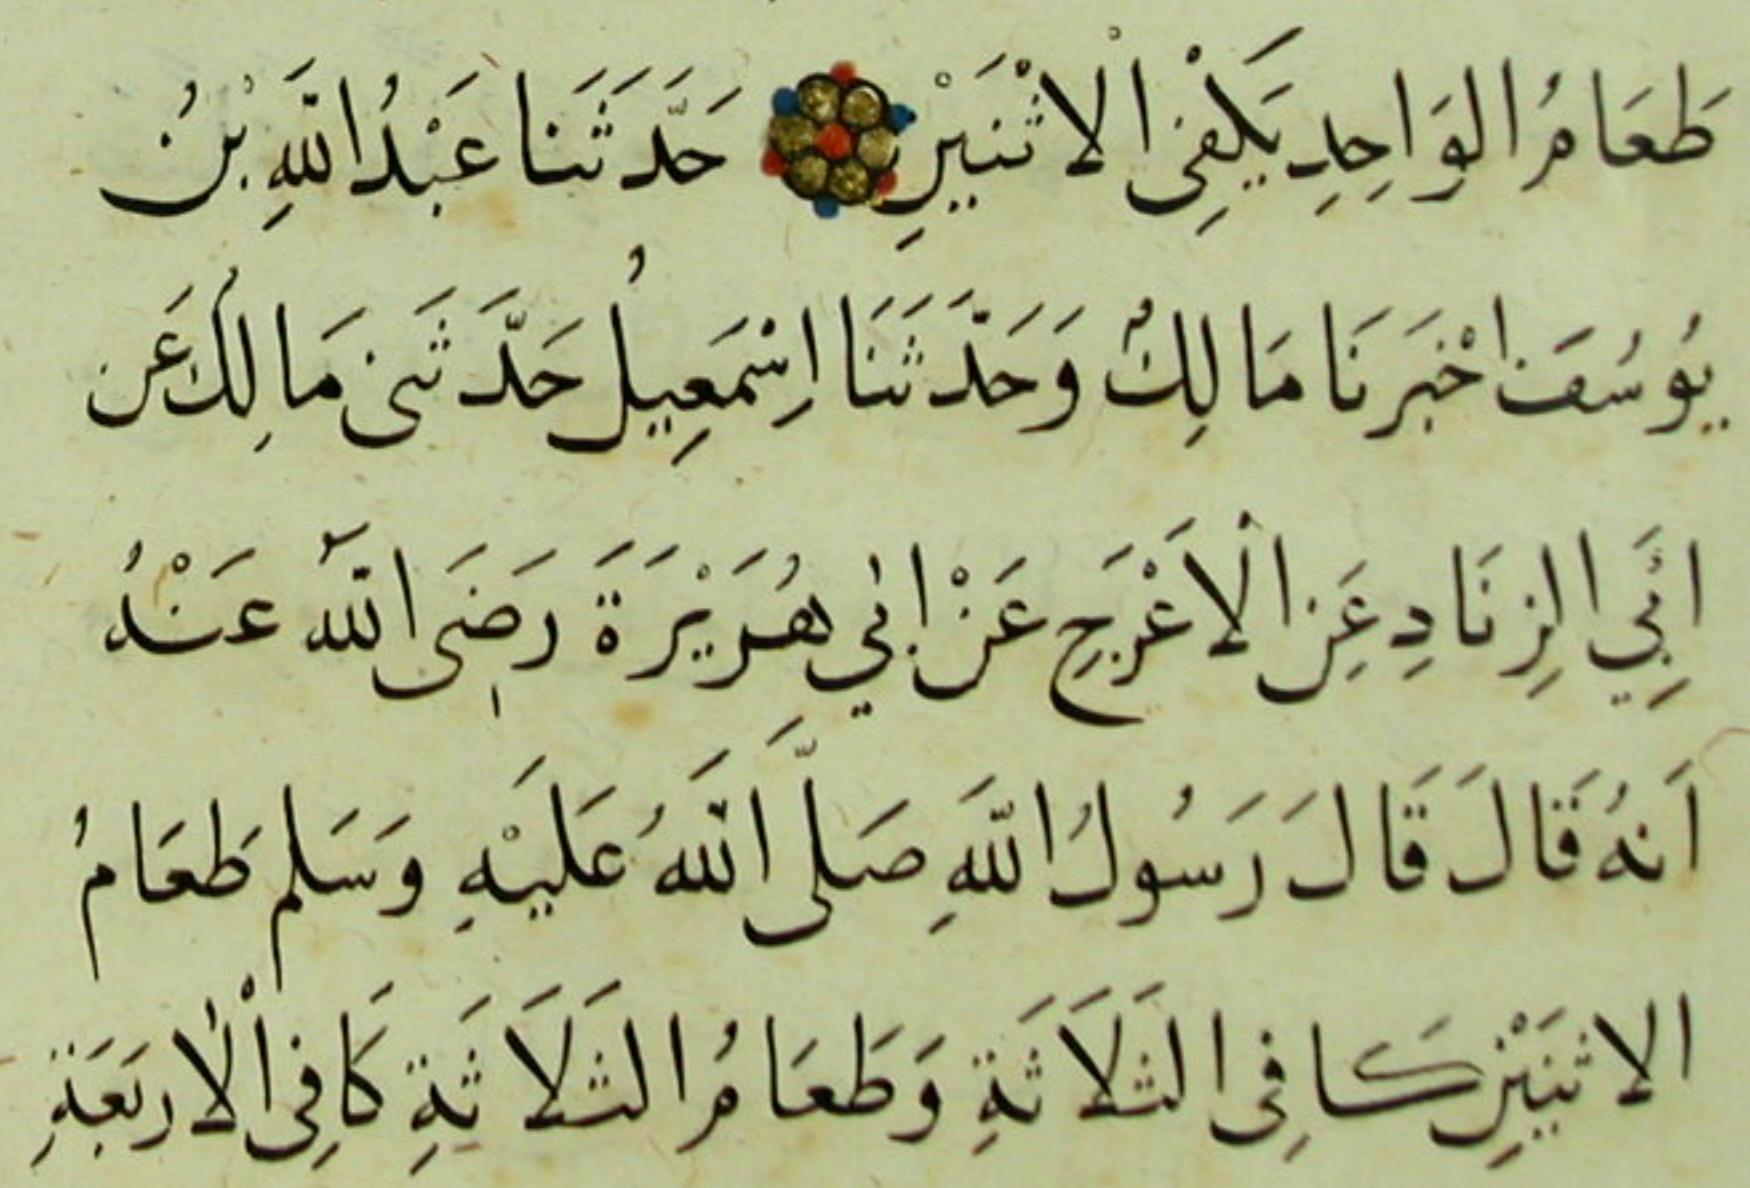 طَعَامُ الوَاحِدِ يَكْفِى الْاثْنَيْنِ حَدَّثَنَا عَبْدُ اللَّهِ بْنُ
يُوسُفَ اخْبَرَنَا مَالِكٌ وَحَدَّثَنَا اِسْمَعِيلُ حَدَّثَنى مَالِكُ عَن
ابِي الزِنَادِ عَنِ الْاَعْرَجِ عَنْ ابي هُرَيْرَةَ رَضِىَ اللَّه عَنْهُ
اَنهُ قَالَ قَالَ رَسُولُ اللَّهِ صَلَّى اللَّهُ عَلَيْهِ وَسَلم طَعَامُ
الاثنَيْنِ كَافِى الثَلَاثَةِ وَطَعَامُ الثَلَاثَةِ كَافِى الْاربَعَةِ